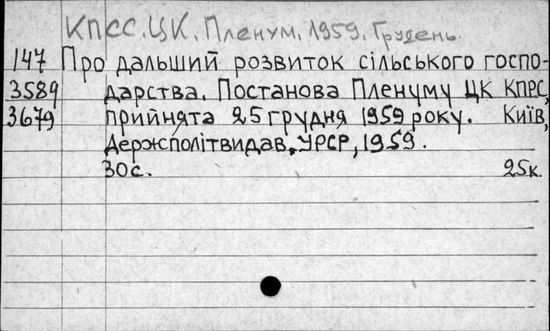 КПСС. ЦК. Пленум. 1959. Грудень.
147 Про дальший розвиток сільського госпо-
3589 дарства. Постанова Пленуму ЦК КПРС,
3679 прийнята 25 грудня 1959 року. Київ,
Держполітвидав УРСР, 1959.
30с. 25к.